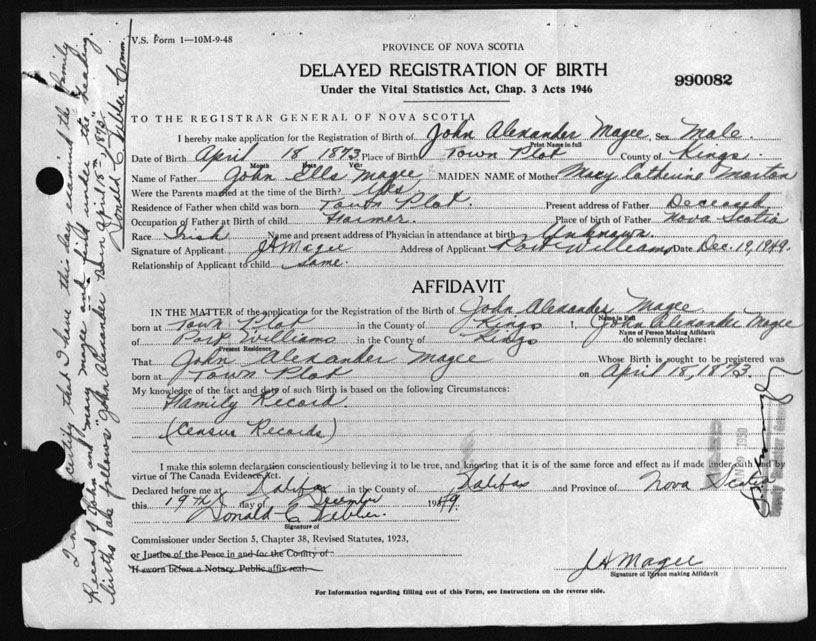 V.S. Form 1—10M-9-48
PROVINCE OF NOVA SCOTIA
DELAYED REGISTRATION OF BIRTH
990082
Under the Vital Statistics Act, Chap. 3 Acts 1946
TO THE REGISTRAR GENERAL OF NOVA SCOTIA
I hereby make application for the Registration of Birth of John Alexander Magee, Sex Male
Print Name in full
Date of Birth April 18, 1873 Place of Birth Town Plot County of Kings
Month Date Year
Name of Father John Ells Magee MAIDEN NAME of Mother Mary Catherine
Were the Parents married at the time of Birth? Yes
Residence of Father when child was born Town Plot. Present address of Father Deceased
Occupation of Father at Birth of child Farmer. Place of birth of Father Nova Scotia
Race Irish Name and present address of Physician in attendance at birth Unknown.
Signature of Applicant JAMagee Address of Applicant Port Williams Date Dec. 19, 1949.
Relationship of Applicant to child Same.
AFFIDAVIT
IN THE MATTER of the application for the Registration of the Birth of John Alexander Magee
Name in Full
born at Town Plot in the County of Kings I, John Alexander Magee
Name of Person Making Affidavit
of Port Williams in the County of Kings do solemnly declare:
Present Residence
That John Alexander Magee Whose Birth is sought to be registered was
born at Town Plot on April 18, 1873.
My knowledge of the fact and date of such Birth is based on the following Circumstances:
Family Record.
(Census Records)
I make this solemn declaration conscientiously believing it to be true, and knowing that it is of the same force and effect as if made under oath and by
virtue of The Canada Evidence Act.
Declared before me at Halifax in the County of Halifax and Province of Nova Scotia
this 19th day of December 1949.
Donald C
Signature of
Commissioner under Section 5, Chapter 38, Revised Statutes, 1923,
or Justice of the Peace in and for the County of
If sworn before a Notary Public affix seal.
JAMagee
Signature of Person making Affidavit
For Information regarding filling out of this Form, see Instructions on the reverse side.
certify that I have this day examined the family
Record of John and Mary Magee and find under the heading
births as follows "John Alexander Born April 18th 1873."
Donald C Comm.